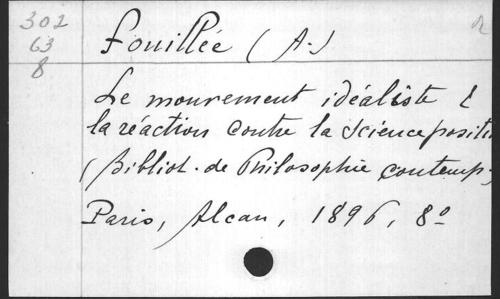 302
63
8
Fouillée (A.)
Le mouvement idéaliste &
la réaction contre la science positi
(Bibliot. de Philosophie contemp.
Paris, Alcan, 1896, 8º